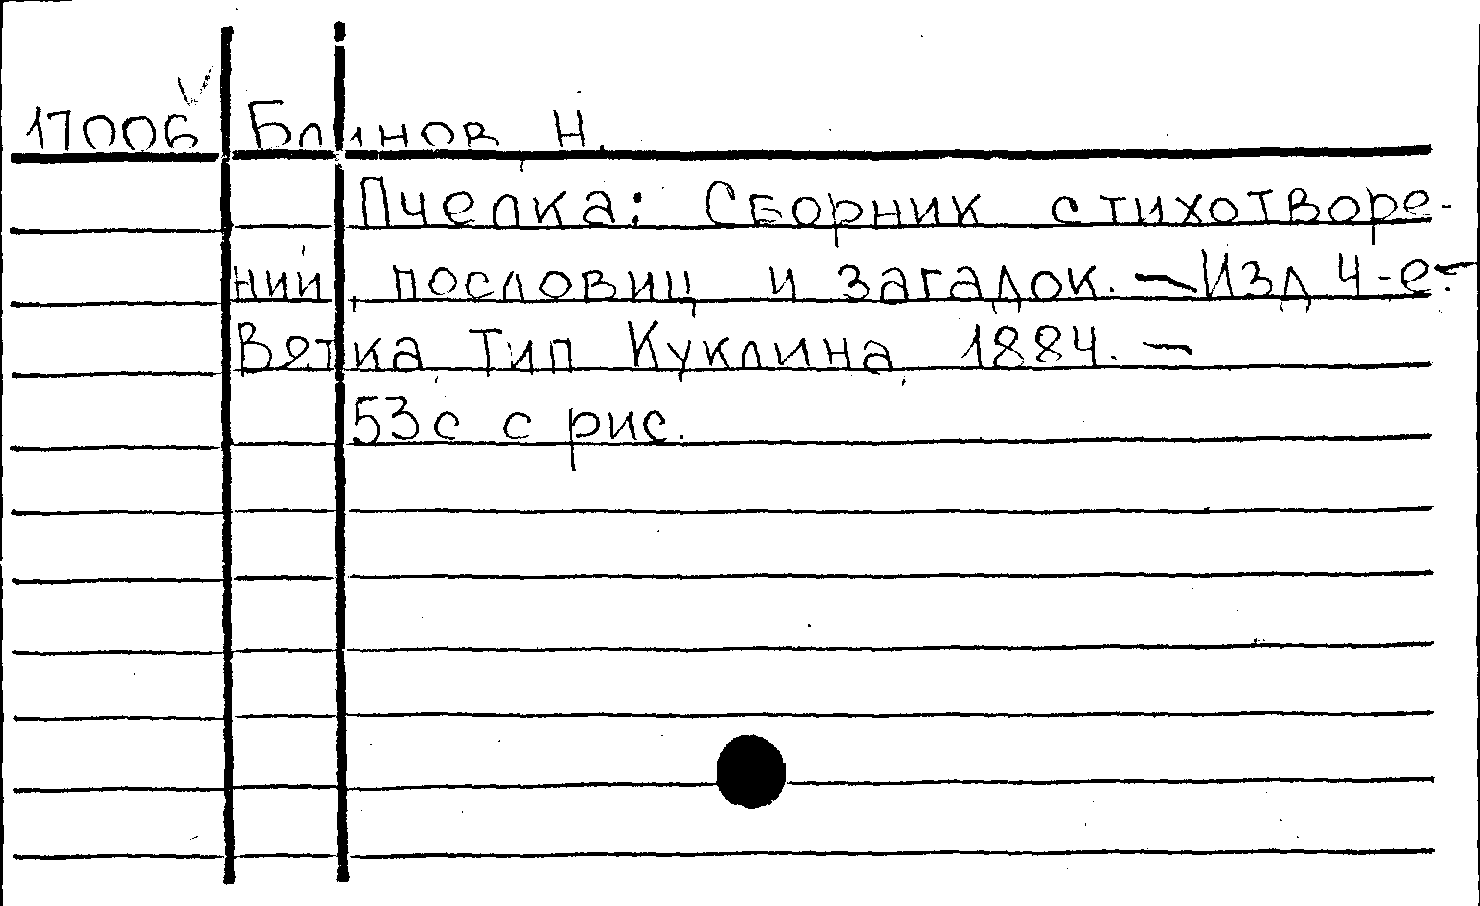 17006 Блинов Н.
Пчелка: Сборник стихотворе-
ний, пословиц и загадок. — Изд 4-е. —
Вятка, Тип Куклина, 1884. —
53с с рис.